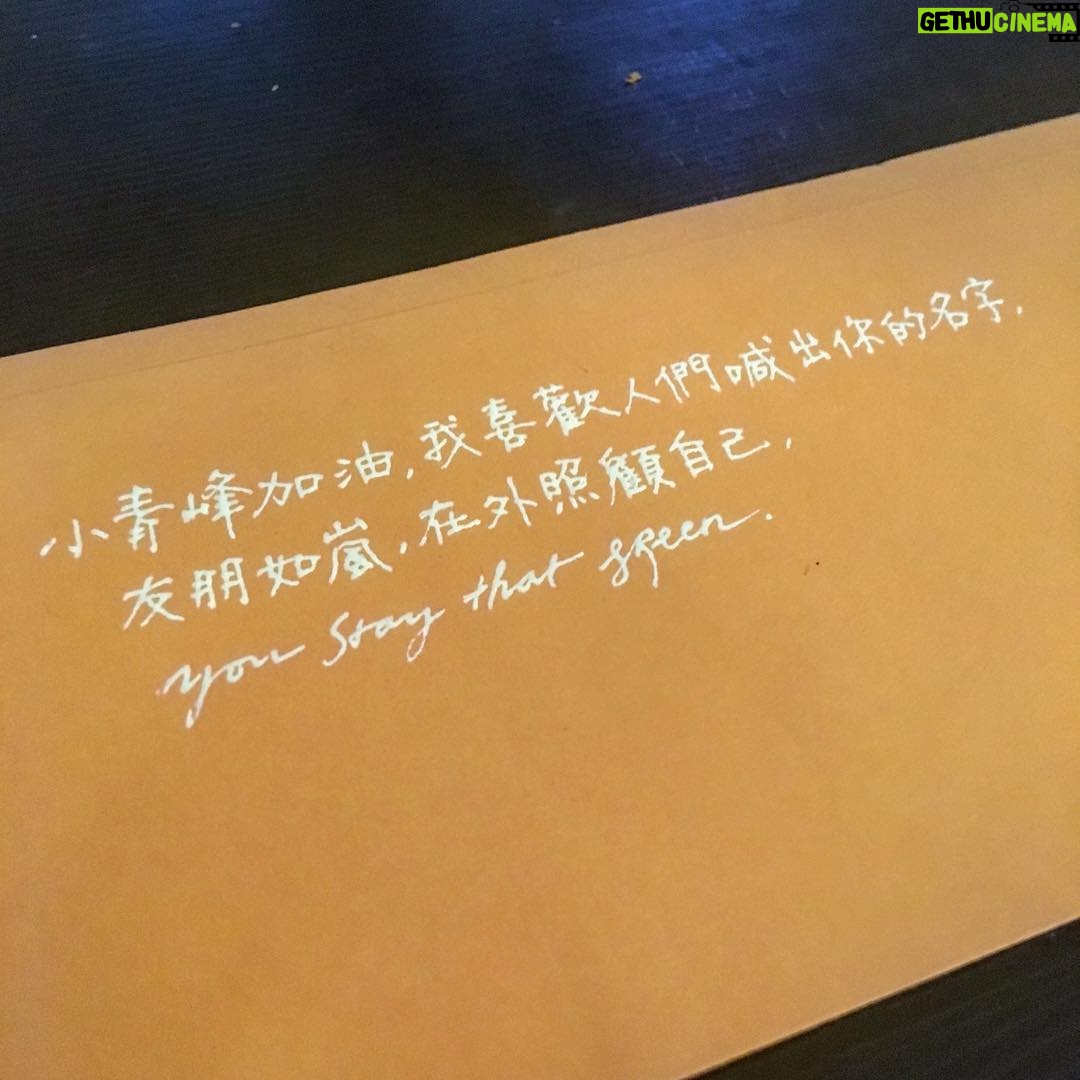 GETHUCINEMA
小青峰加油,我喜歡人們喊出你的名字,
友朋如嵐,在外照顧自己,
you stay that green.